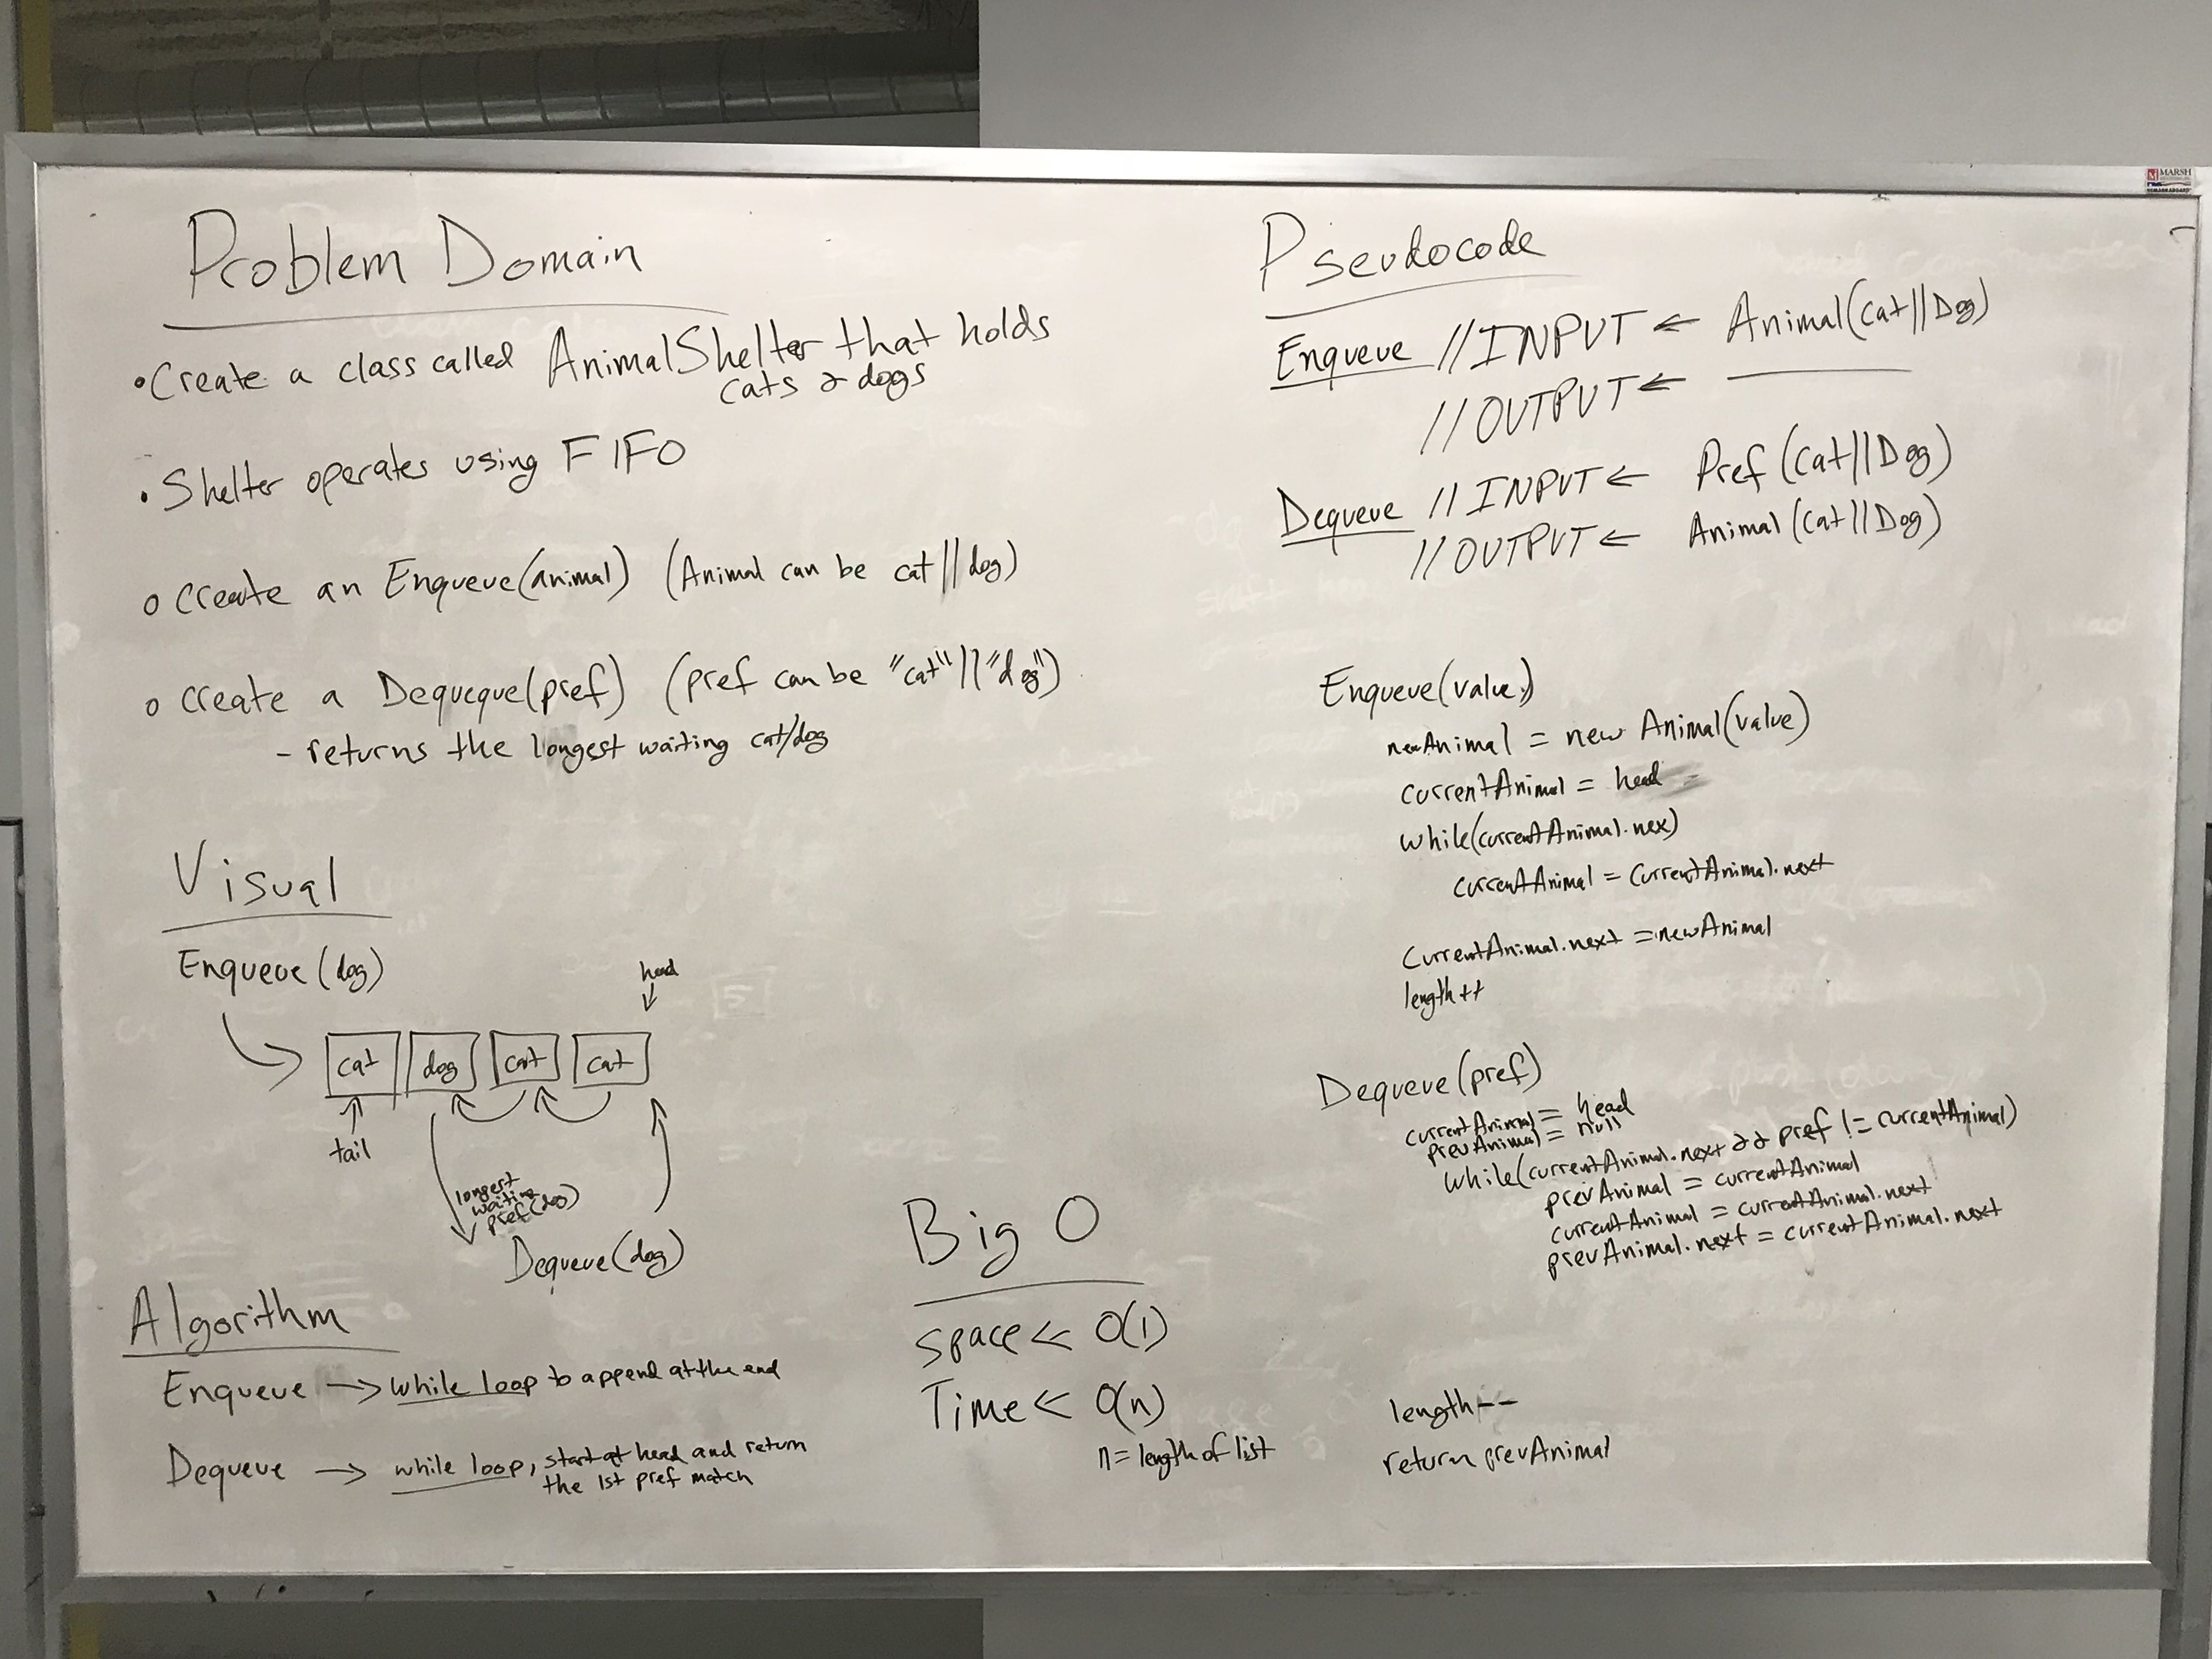 Problem Domain
• Create a class called AnimalShelter that holds
cats & dogs
• Shelter operates using FIFO
o Create an Enqueue(animal) (Animal can be cat||dog)
o Create a Dequeque(pref) (pref can be "cat"||"dog")
- returns the longest waiting cat/dog
Visual
Enqueue(dog)
head
cat dog cat cat
tail
longest
waiting
pref(dog)
Dequeue(dog)
Algorithm
Enqueue → while loop to append at the end
Dequeue → while loop, start at head and return
the 1st pref match
Big O
Space ← O(1)
Time ← O(n)
n = length of list
Pseudocode
Enqueue //INPUT ← Animal(Cat||Dog)
//OUTPUT ← ———
Dequeue //INPUT ← Pref(Cat||Dog)
//OUTPUT ← Animal(Cat||Dog)
Enqueue(value)
newAnimal = new Animal(value)
currentAnimal = head
while(currentAnimal.nex)
currentAnimal = currentAnimal.next
currentAnimal.next = newAnimal
length++
Dequeue(pref)
currentAnimal = head
prevAnimal = null
while(currentAnimal.next && pref != currentAnimal)
prevAnimal = currentAnimal
currentAnimal = currentAnimal.next
prevAnimal.next = currentAnimal.next
length--
return prevAnimal
MARSH